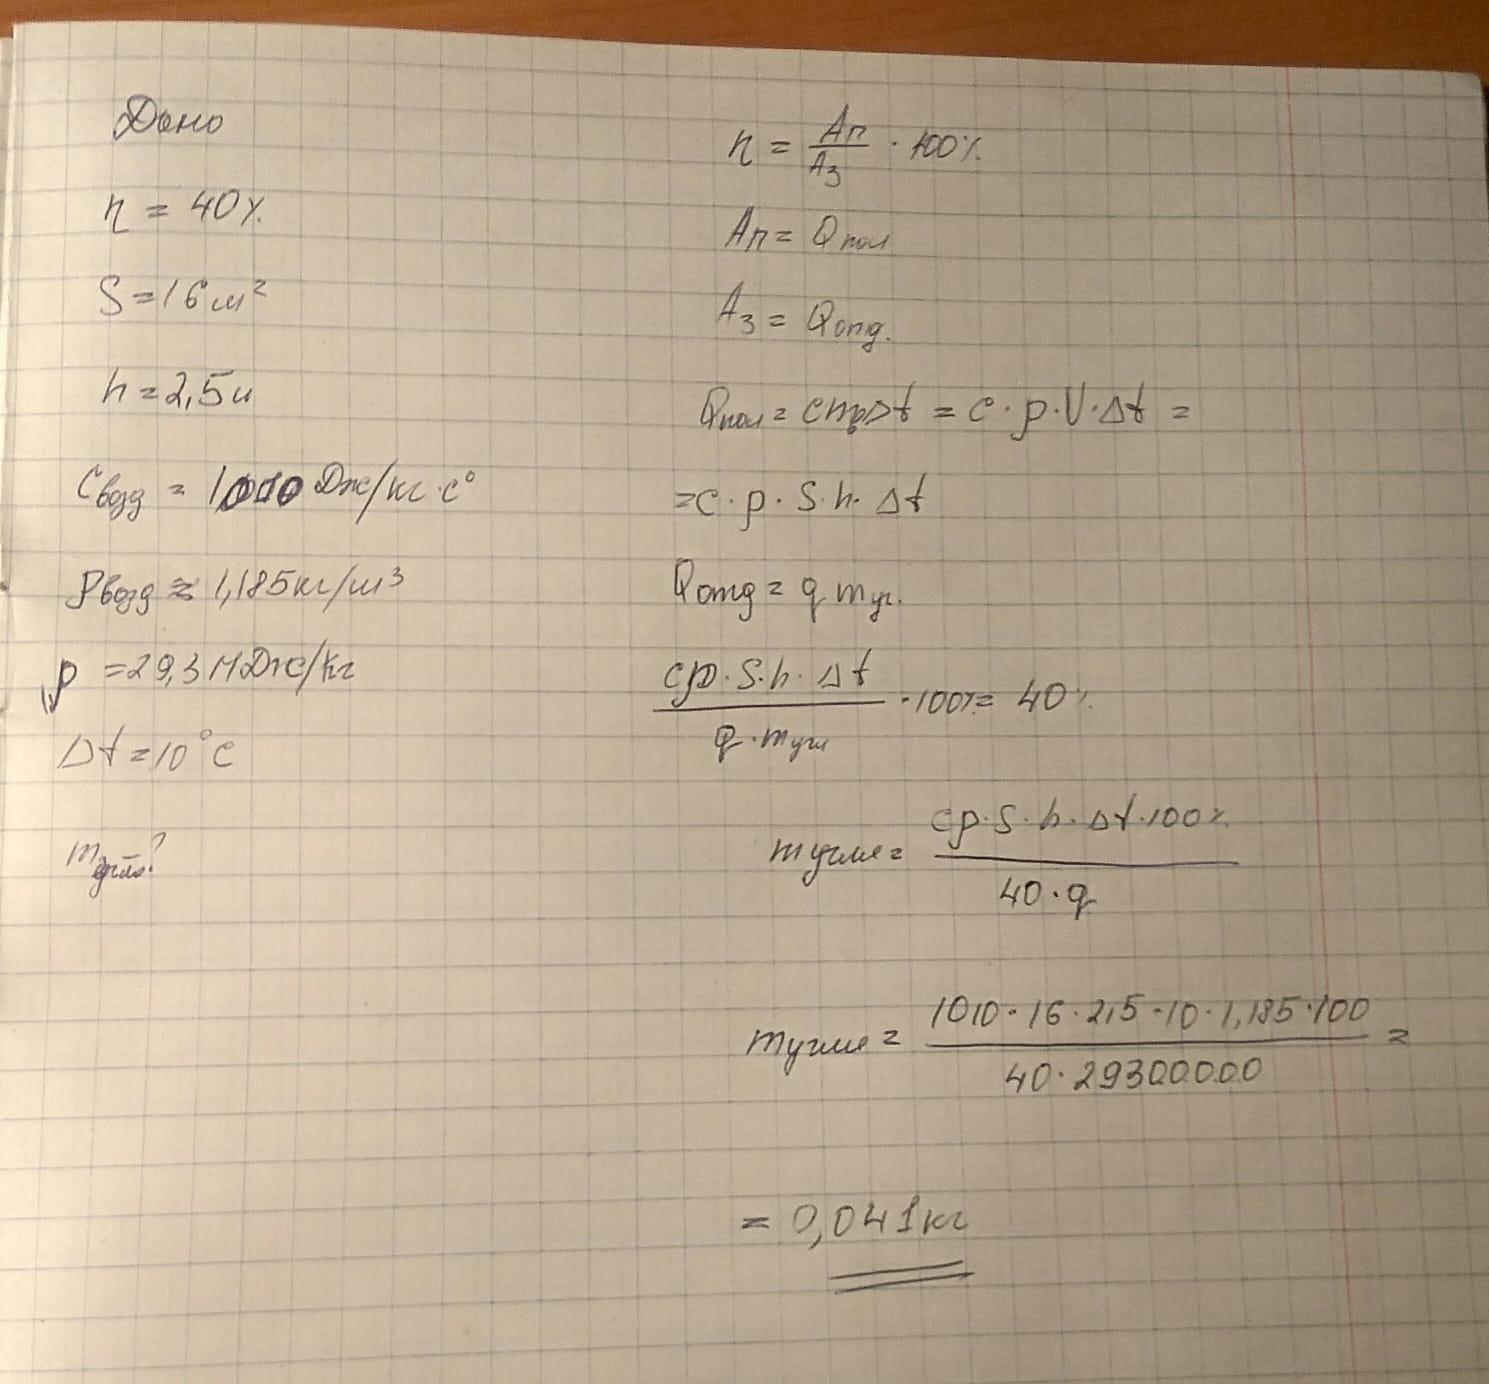 Дано
η = 40%
S = 16 м²
h = 2,5 м
Cвозд = 1010 Дж/кг·c°
ρвозд ≈ 1,185 кг/м³
= 29,3 МДж/кг
Δt = 10°C
m ?
η = Aп/Aз · 100%
Aп = Qпол
Aз = Qотд.
Qпол = cmвΔt = c·ρ·V·Δt =
= c·ρ·S·h·Δt
Qотд = q mуг.
cρ·S·h·Δt / q·mугл · 100% = 40%
mугле = cρ·S·h·Δt·100% / 40·q
mугле = 1010·16·2,5·10·1,185·100 / 40·29300000 =
= 0,041кг